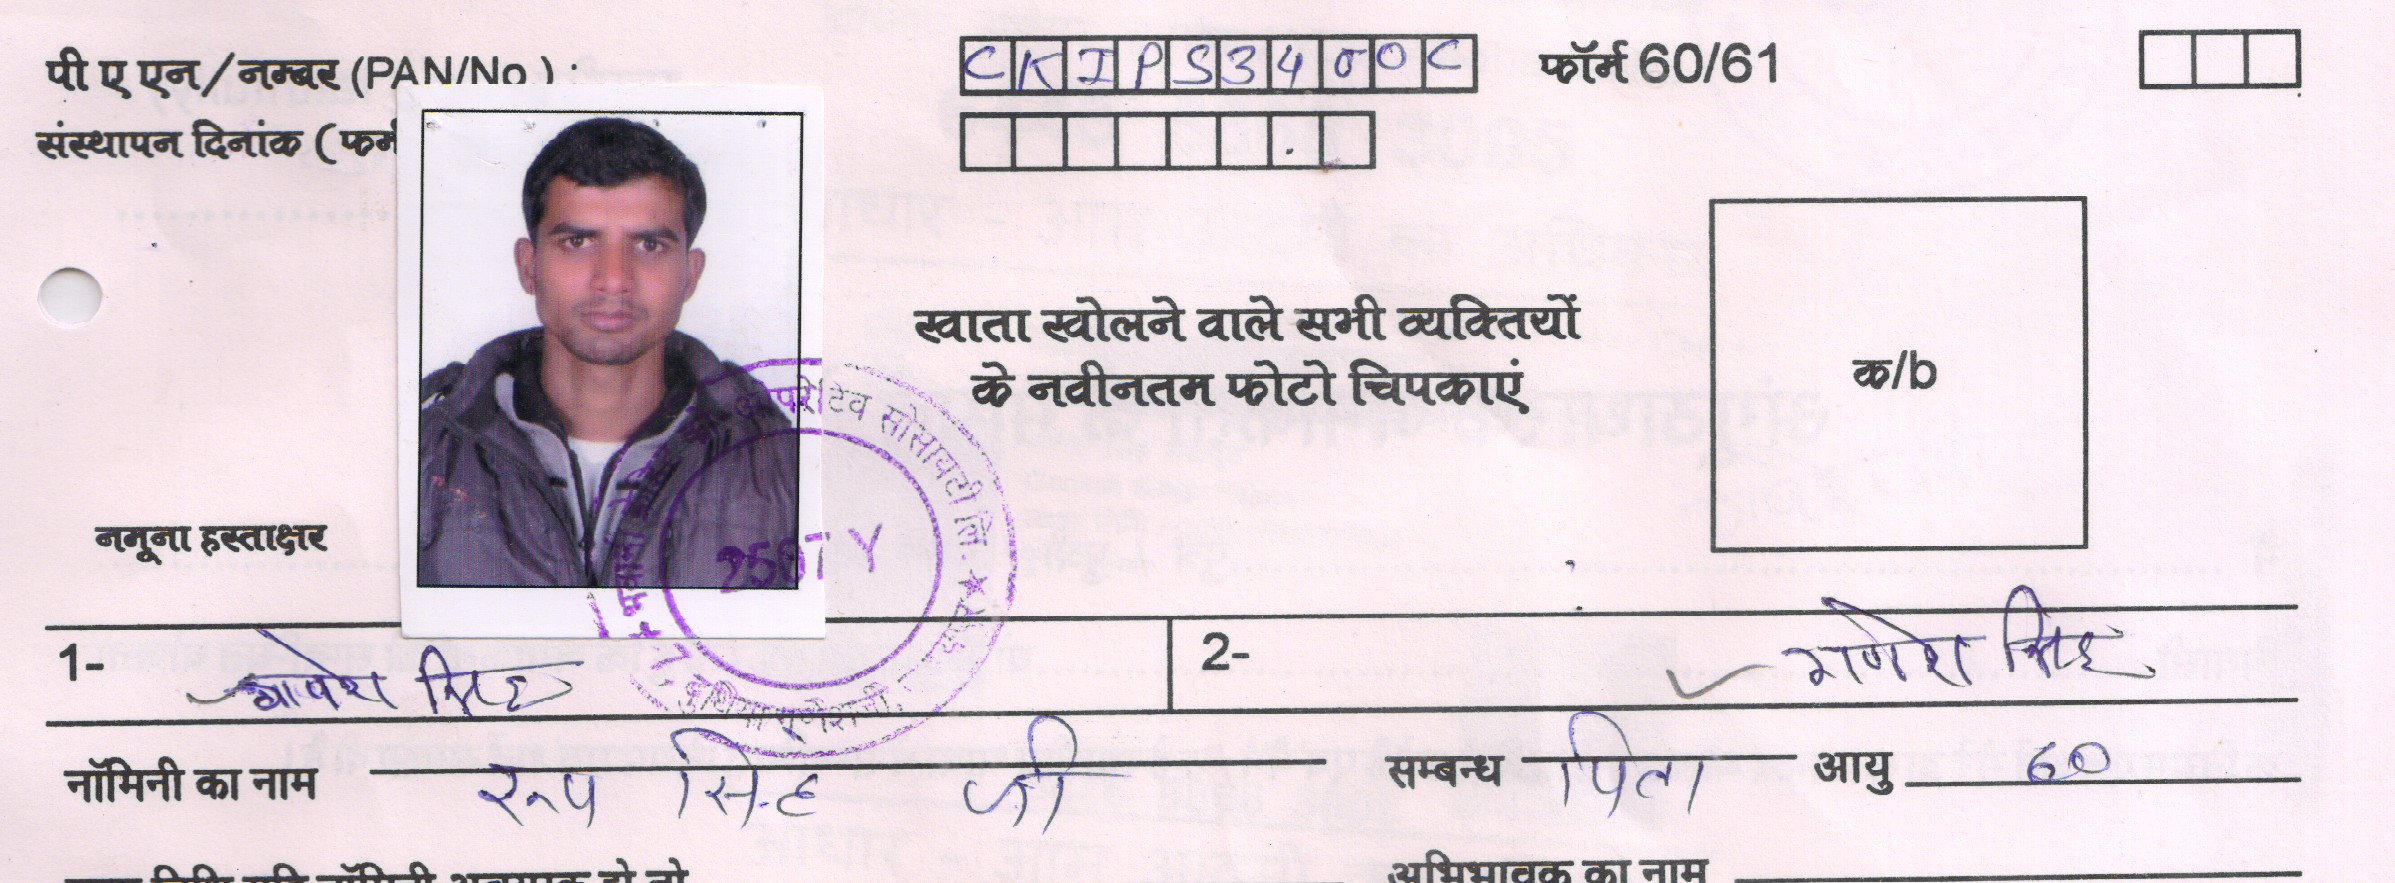 पी ए एन/नम्बर (PAN/No.) : CKIPS3400C फॉर्म 60/61
संस्थापन दिनांक (फर्म
खाता खोलने वाले सभी व्यक्तियों
के नवीनतम फोटो चिपकाएं
क/b
नमूना हस्ताक्षर
को-आपरेटिव सोसायटी लि.
1- गणेश सिंह 2- गणेश सिंह
नॉमिनी का नाम रूप सिंह जी सम्बन्ध पिता आयु 60
अभिभावक का नाम